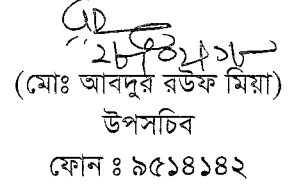 (মোঃ আবদুর রউফ মিয়া)
উপসচিব
ফোন ঃ ৯৫১৪১৪২